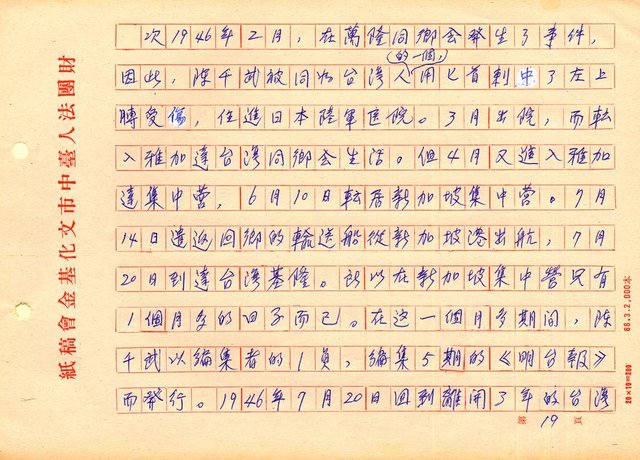 次1946年2月，在萬隆同鄉会發生了事件，
的一個，
因此，陳千武被同为台湾人用匕首刺中了左上
膊受傷，住進日本陸軍医院。3月出院，而転
入雅加達台湾同鄉会生活。但4月又進入雅加
達集中营，6月10日転居新加坡集中营。7月
14日遣返回鄉的輸送船從新加坡港出航，7月
20日到達台湾基隆。所以在新加坡集中營只有
1個月多的日子而已。在这一個月多期間，陳
千武以編集者的1員，編集5期的《明台報》
而發行。1946年7月20日回到離開了3年的台湾
第19頁
財團法人臺中市文化基金會稿紙
88.3.2,000本
20×10=200